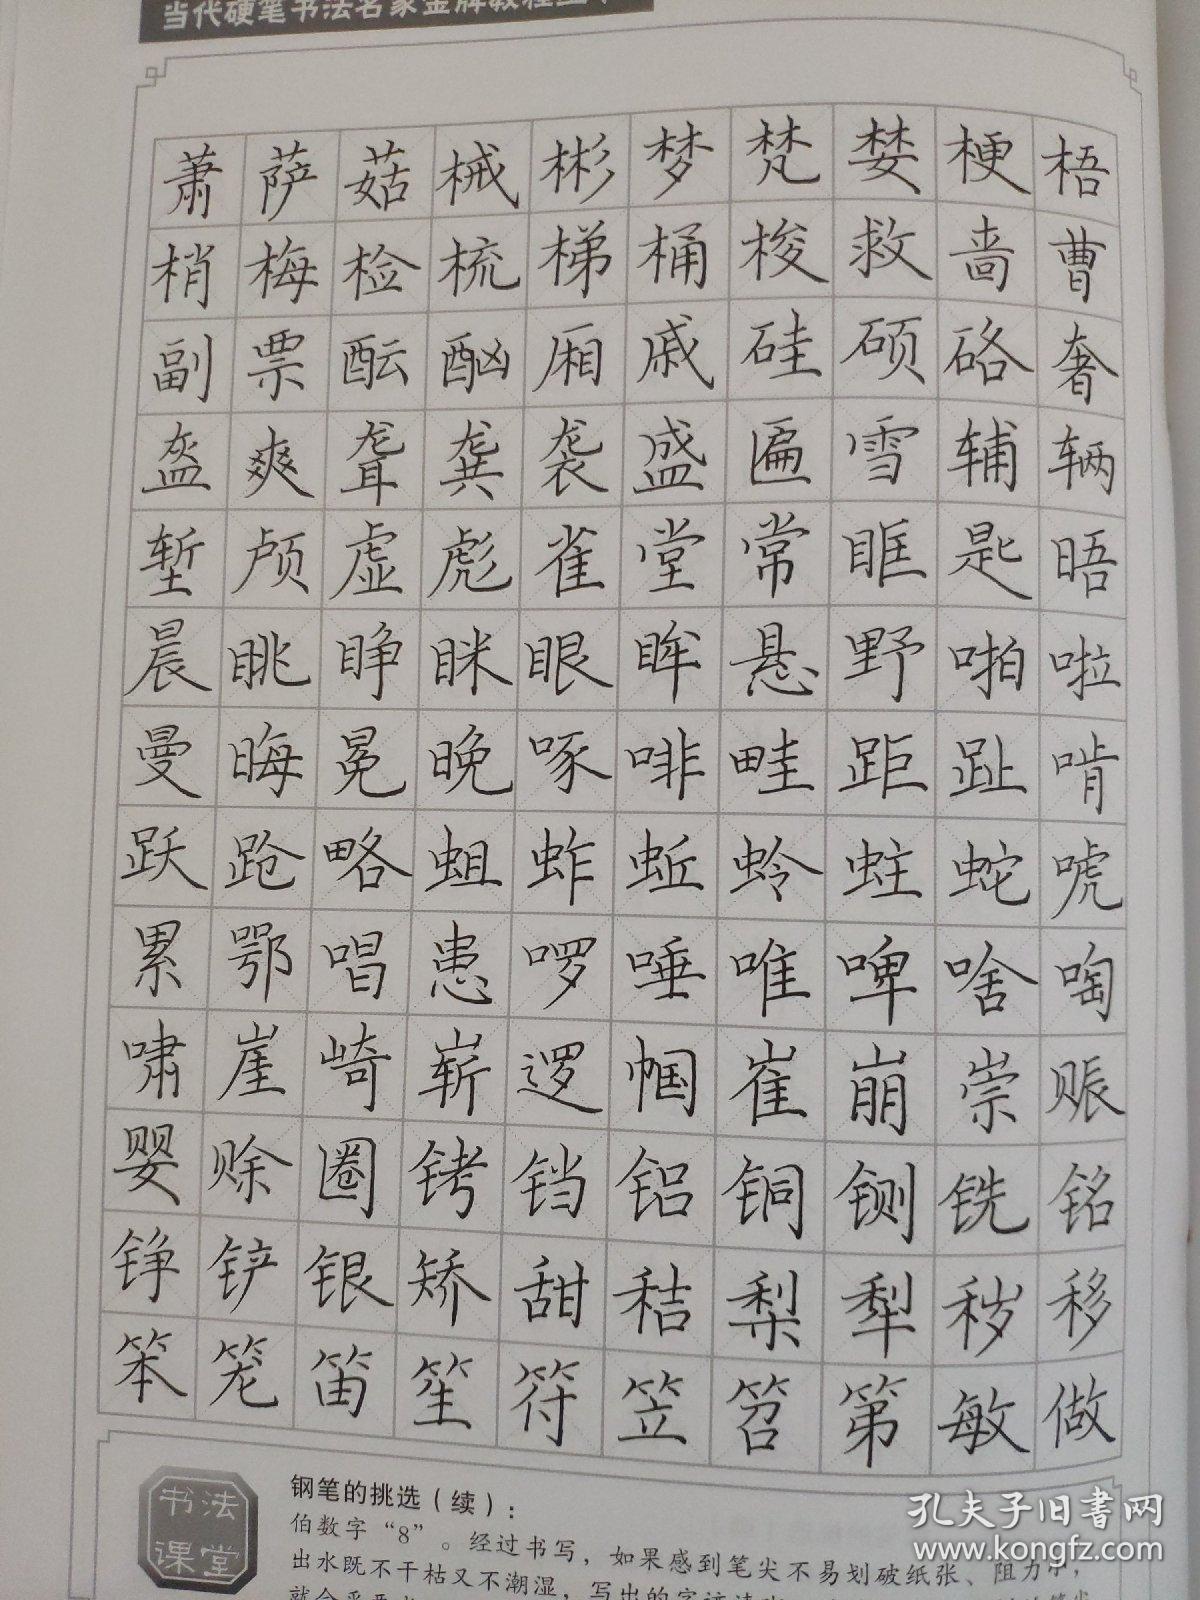 当代硬笔书法名家金牌教程
萧萨菇械彬梦梵婪梗梧
梢梅检梳梯桶梭救啬曹
副票酝酗厢戚硅硕硌奢
盔爽聋龚袭盛匾雪辅辆
堑颅虚彪雀堂常眶匙晤
晨眺睁眯眼眸悬野啪啦
曼晦冕晚啄啡畦距趾啃
跃跄略蛆蚱蚯蛉蛀蛇唬
累鄂唱患啰唾唯啤啥啕
啸崖崎崭逻帼崔崩崇赈
婴赊圈铐铛铝铜铡铣铭
铮铲银矫甜秸梨犁秽移
笨笼笛笙符笠笤第敏做
书法
课堂
钢笔的挑选(续):
伯数字“8”。经过书写,如果感到笔尖不易划破纸张、阻力小,
出水既不干枯又不潮湿,写出的字迹
孔夫子旧书网
www.kongfz.com